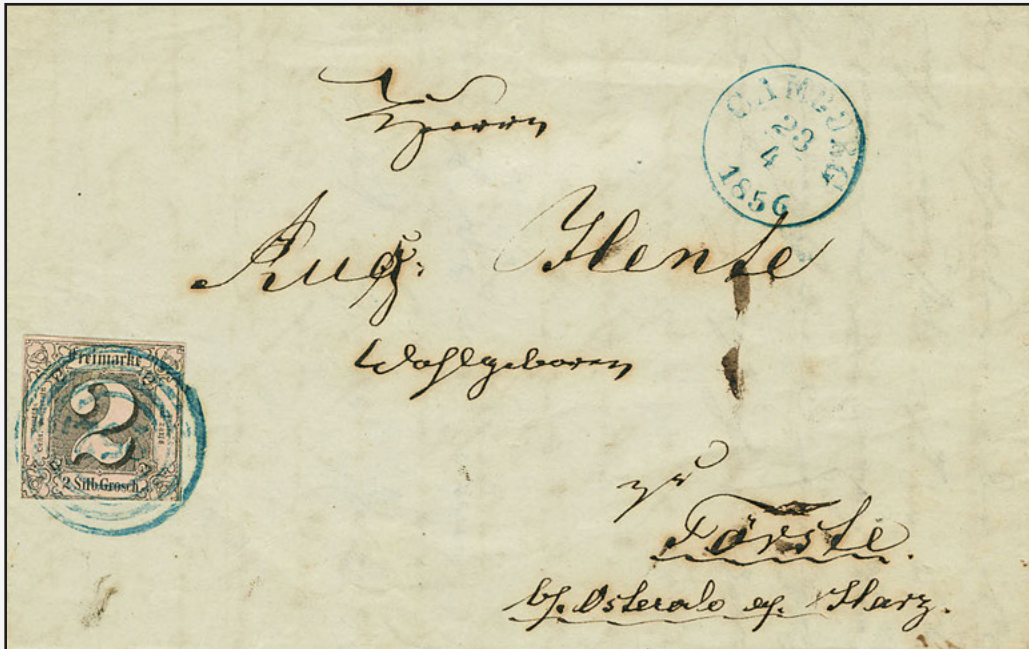 Herrn
CAMBURG
23
4
1856
Aug: Hente
Wohlgeboren
Freimarke
2
2 Silb.Grosch.
zu
Förste.
b/. Osterode a/. Harz.